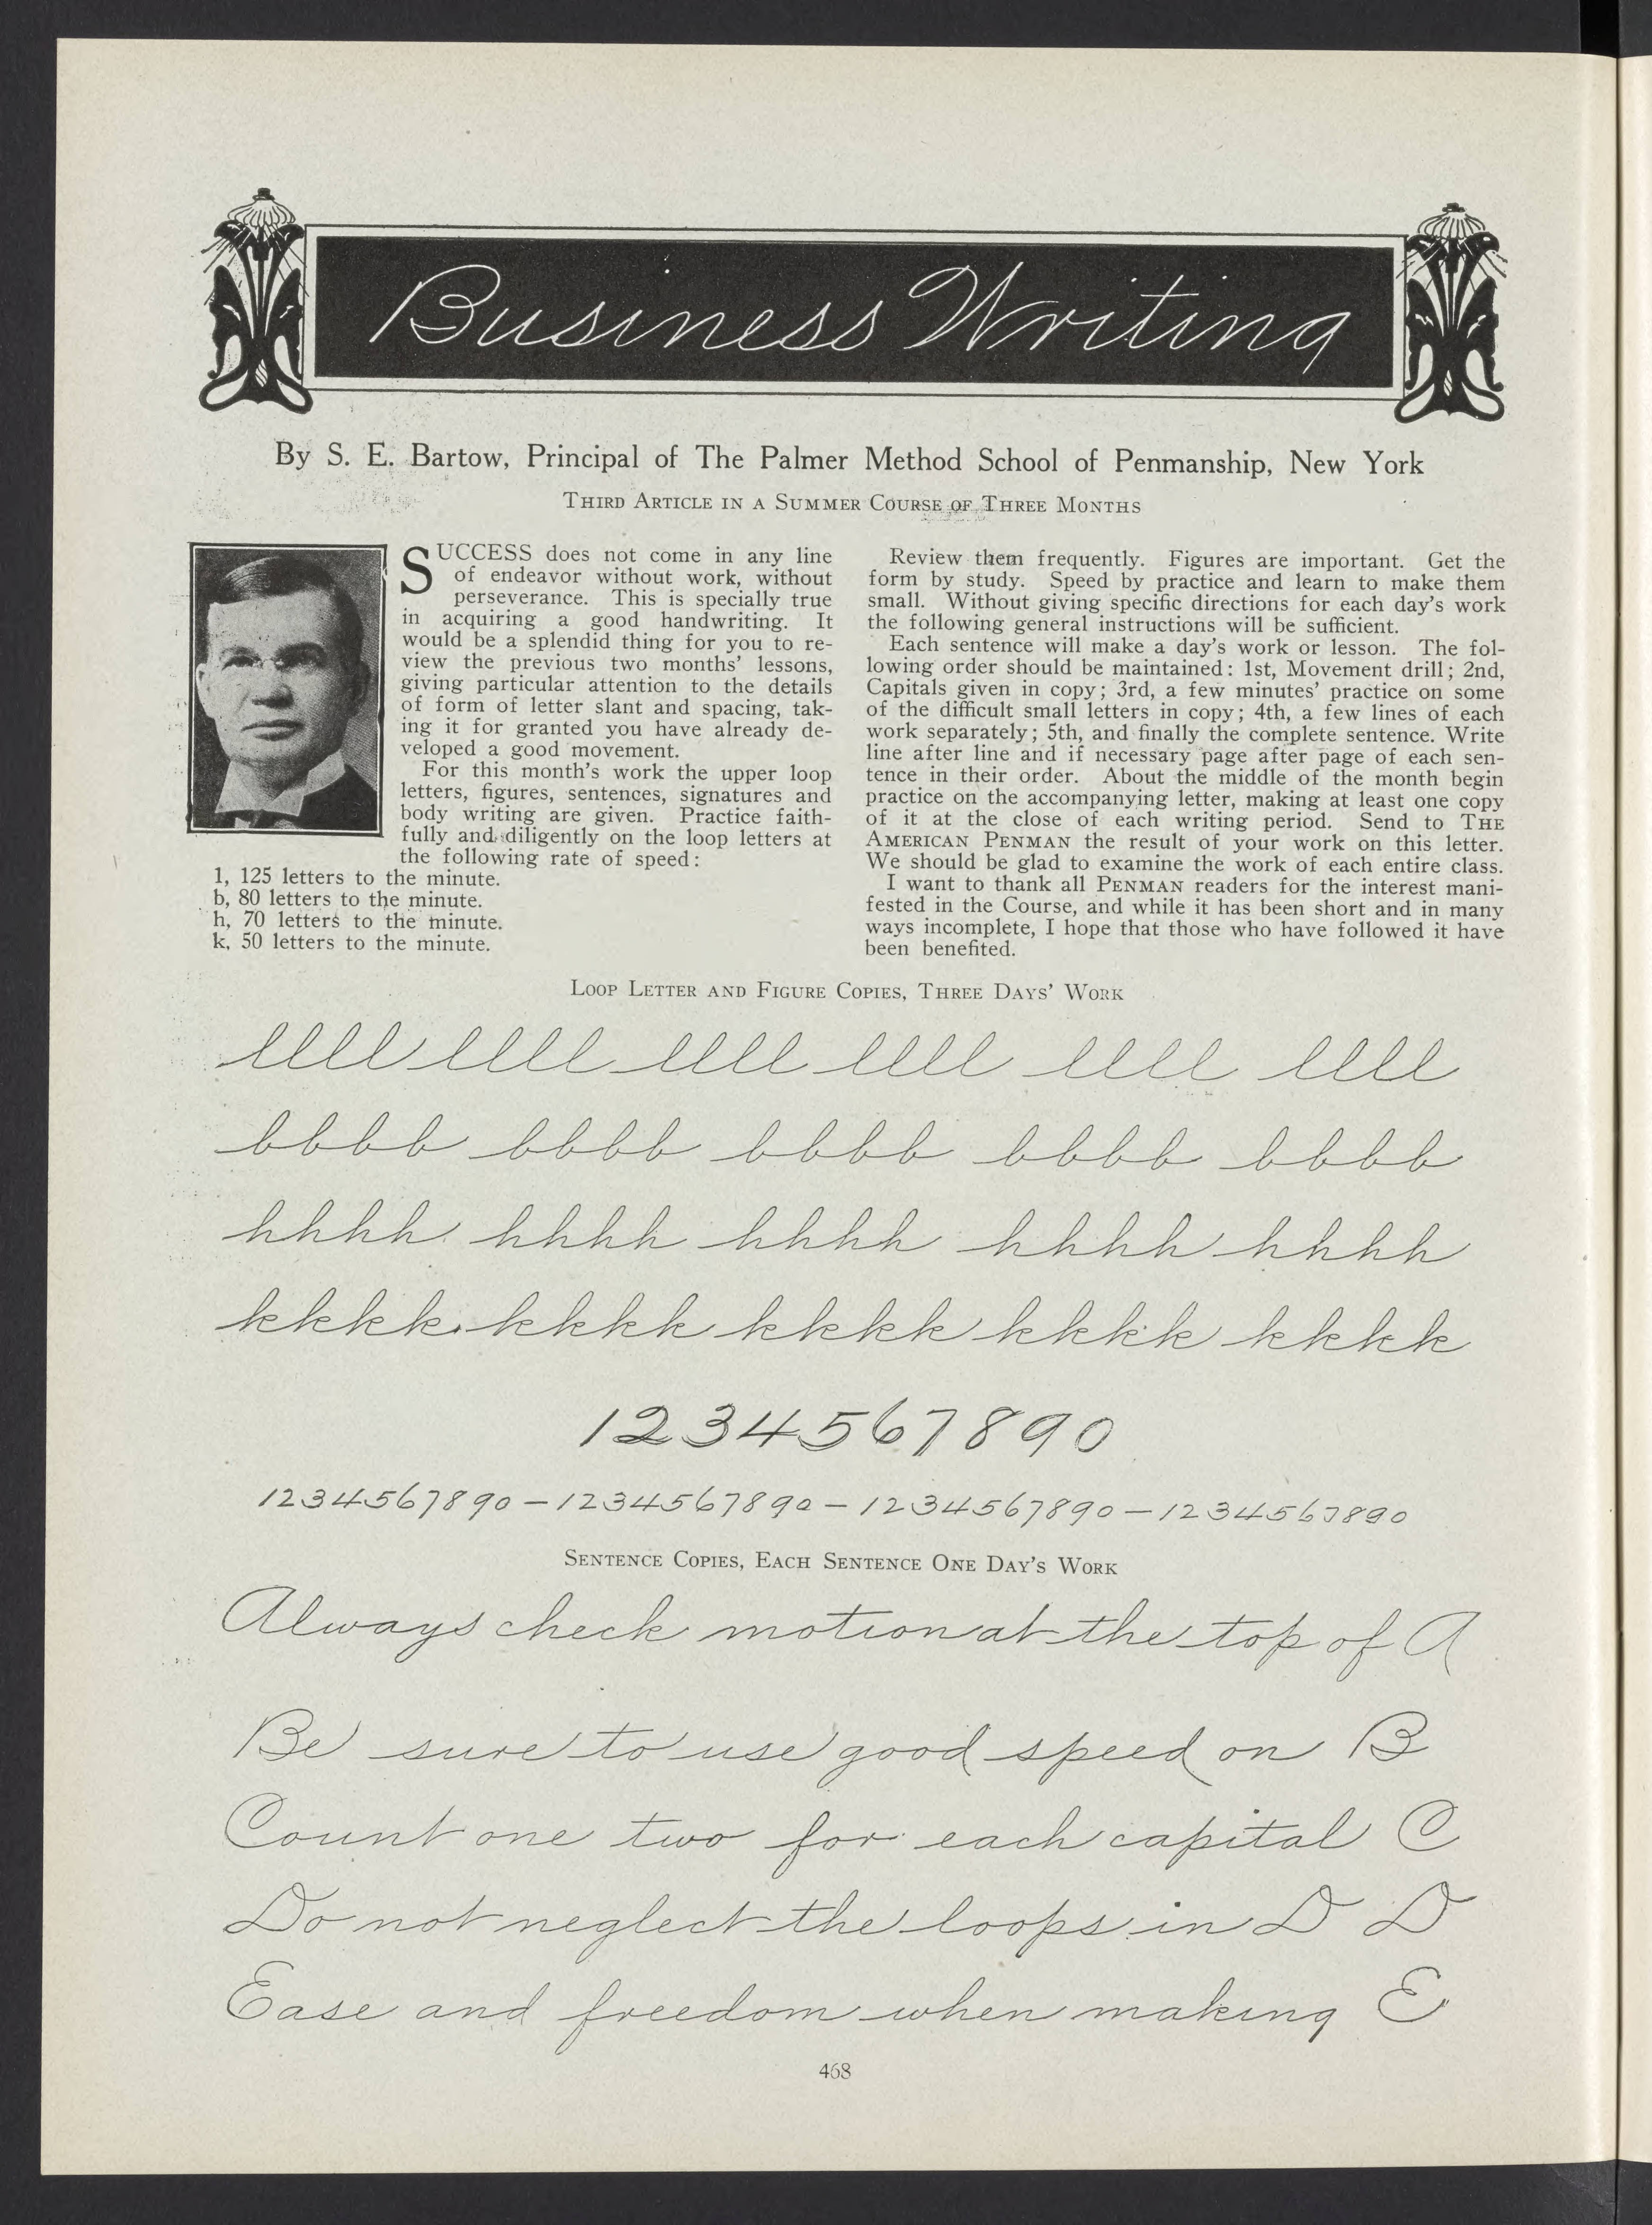 Business Writing
By S. E. Bartow, Principal of The Palmer Method School of Penmanship, New York
THIRD ARTICLE IN A SUMMER COURSE OF THREE MONTHS
SUCCESS does not come in any line
of endeavor without work, without
perseverance. This is specially true
in acquiring a good handwriting. It
would be a splendid thing for you to re-
view the previous two months' lessons,
giving particular attention to the details
of form of letter slant and spacing, tak-
ing it for granted you have already de-
veloped a good movement.
For this month's work the upper loop
letters, figures, sentences, signatures and
body writing are given. Practice faith-
fully and diligently on the loop letters at
the following rate of speed:
l, 125 letters to the minute.
b, 80 letters to the minute.
h, 70 letters to the minute.
k, 50 letters to the minute.
Review them frequently. Figures are important. Get the
form by study. Speed by practice and learn to make them
small. Without giving specific directions for each day's work
the following general instructions will be sufficient.
Each sentence will make a day's work or lesson. The fol-
lowing order should be maintained: 1st, Movement drill; 2nd,
Capitals given in copy; 3rd, a few minutes' practice on some
of the difficult small letters in copy; 4th, a few lines of each
work separately; 5th, and finally the complete sentence. Write
line after line and if necessary page after page of each sen-
tence in their order. About the middle of the month begin
practice on the accompanying letter, making at least one copy
of it at the close of each writing period. Send to THE
AMERICAN PENMAN the result of your work on this letter.
We should be glad to examine the work of each entire class.
I want to thank all PENMAN readers for the interest mani-
fested in the Course, and while it has been short and in many
ways incomplete, I hope that those who have followed it have
been benefited.
LOOP LETTER AND FIGURE COPIES, THREE DAYS' WORK
llll llll llll llll llll llll
bbbb bbbb bbbb bbbb bbbb
hhhh hhhh hhhh hhhh hhhh
kkkk kkkk kkkk kkkk kkkk
1234567890
1234567890 – 1234567890 – 1234567890 – 1234567890
SENTENCE COPIES, EACH SENTENCE ONE DAY'S WORK
Always check motion at the top of A
Be sure to use good speed on B
Count one two for each capital C
Do not neglect the loops in D D
Ease and freedom when making E
468